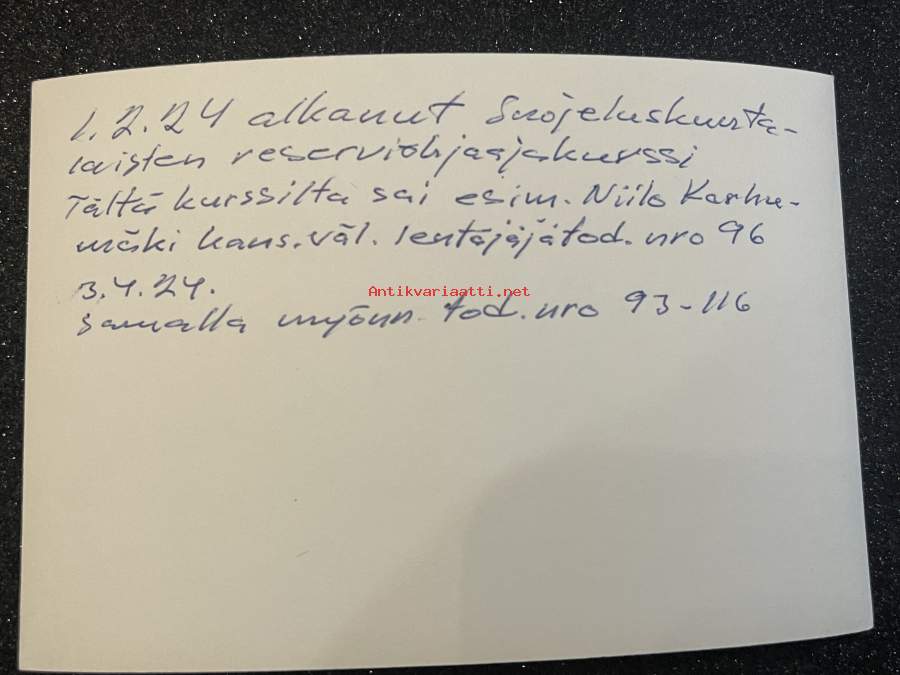 1.2.24 alkanut Suojeluskunta-
laisten reserviohjaajakurssi
Tältä kurssilta sai esim. Niilo Karhu-
mäki kans.väl. lentäjätod. nro 96
3.4.24.
Antikvariaatti.net
samalla myönn. tod. nro 93-116